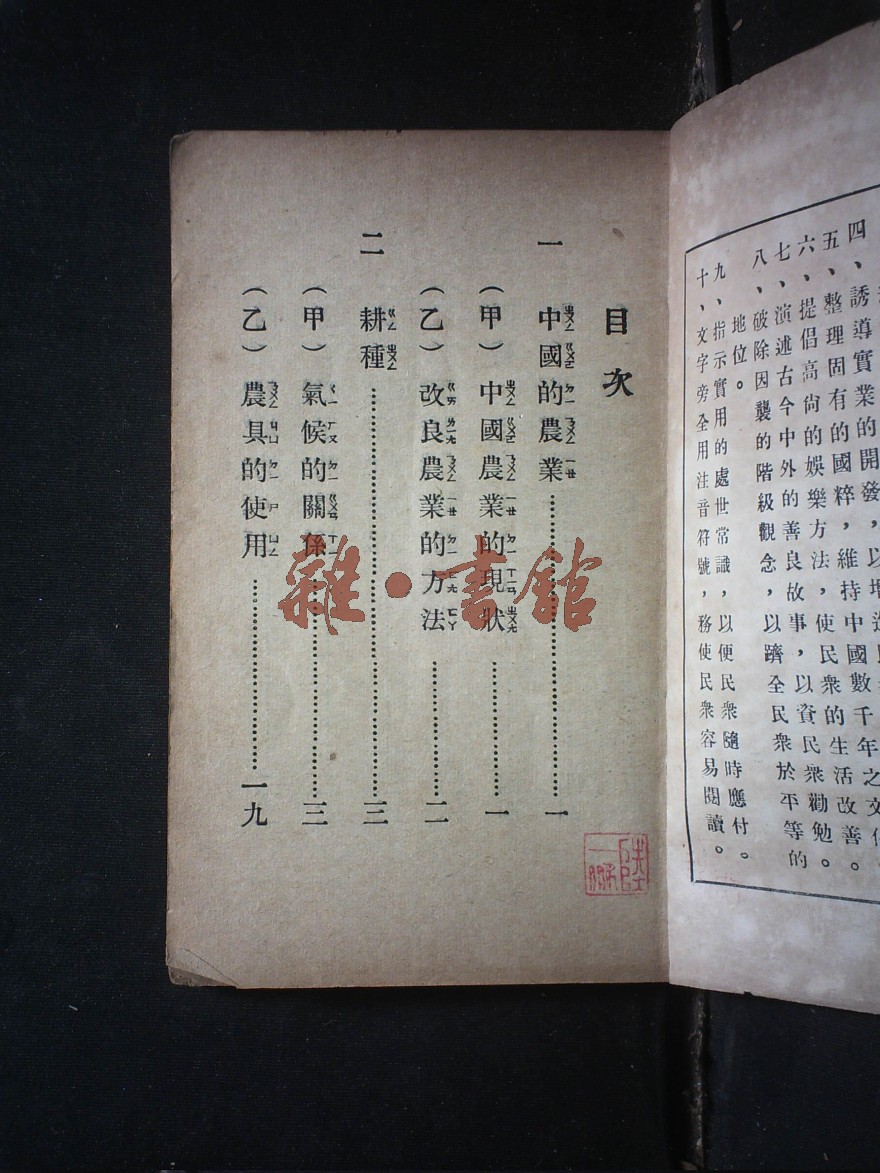 四、誘導實業的開發，以增進
五、整理固有的國粹，維持中國數千年之文化。
六、提倡高尚的娛樂方法，使民衆的生活改善。
七、演述古今中外的善良故事，以資民衆勸勉。
八、破除因襲的階級觀念，以躋全民衆於平等的
地位。
九、指示實用的處世常識，以便民衆隨時應付。
十、文字旁全用注音符號，務使民衆容易閱讀。
目次
一 中國的農業…………一
（甲）中國農業的現狀…………一
（乙）改良農業的方法…………二
二 耕種…………三
（甲）氣候的關係…………三
（乙）農具的使用…………一九
雜·書館